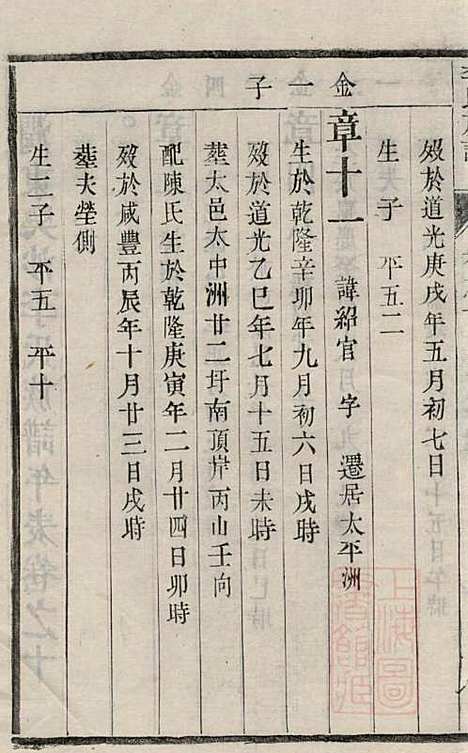 歿於道光庚戌年五月初七日
生一子 平五二
金一子
章十一 諱紹官 字 遷居太平洲
生於乾隆辛卯年九月初六日戌時
歿於道光乙巳年七月十五日未時
塟太邑太中洲廿二圩南頂岸丙山壬向
配陳氏生於乾隆庚寅年二月廿四日卯時
歿於咸豐丙辰年十月廿三日戌時
塟夫塋側
生二子 平五 平十